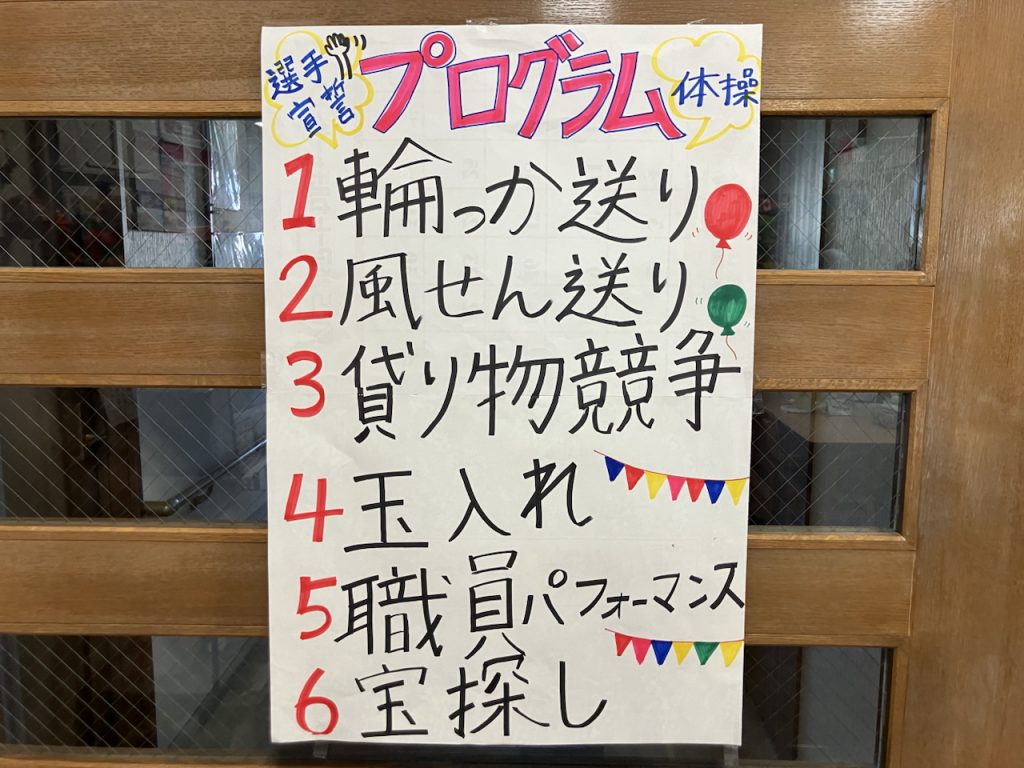 選手宣誓
プログラム
体操
1 輪っか送り
2 風せん送り
3 貸り物競争
4 玉入れ
5 職員パフォーマンス
6 宝探し